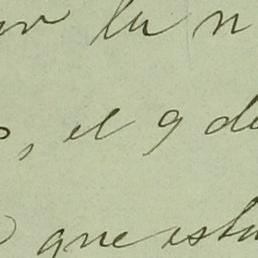 la n
, el 9 de
que esta